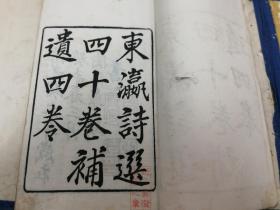 東瀛詩選
四十卷補
遺四卷